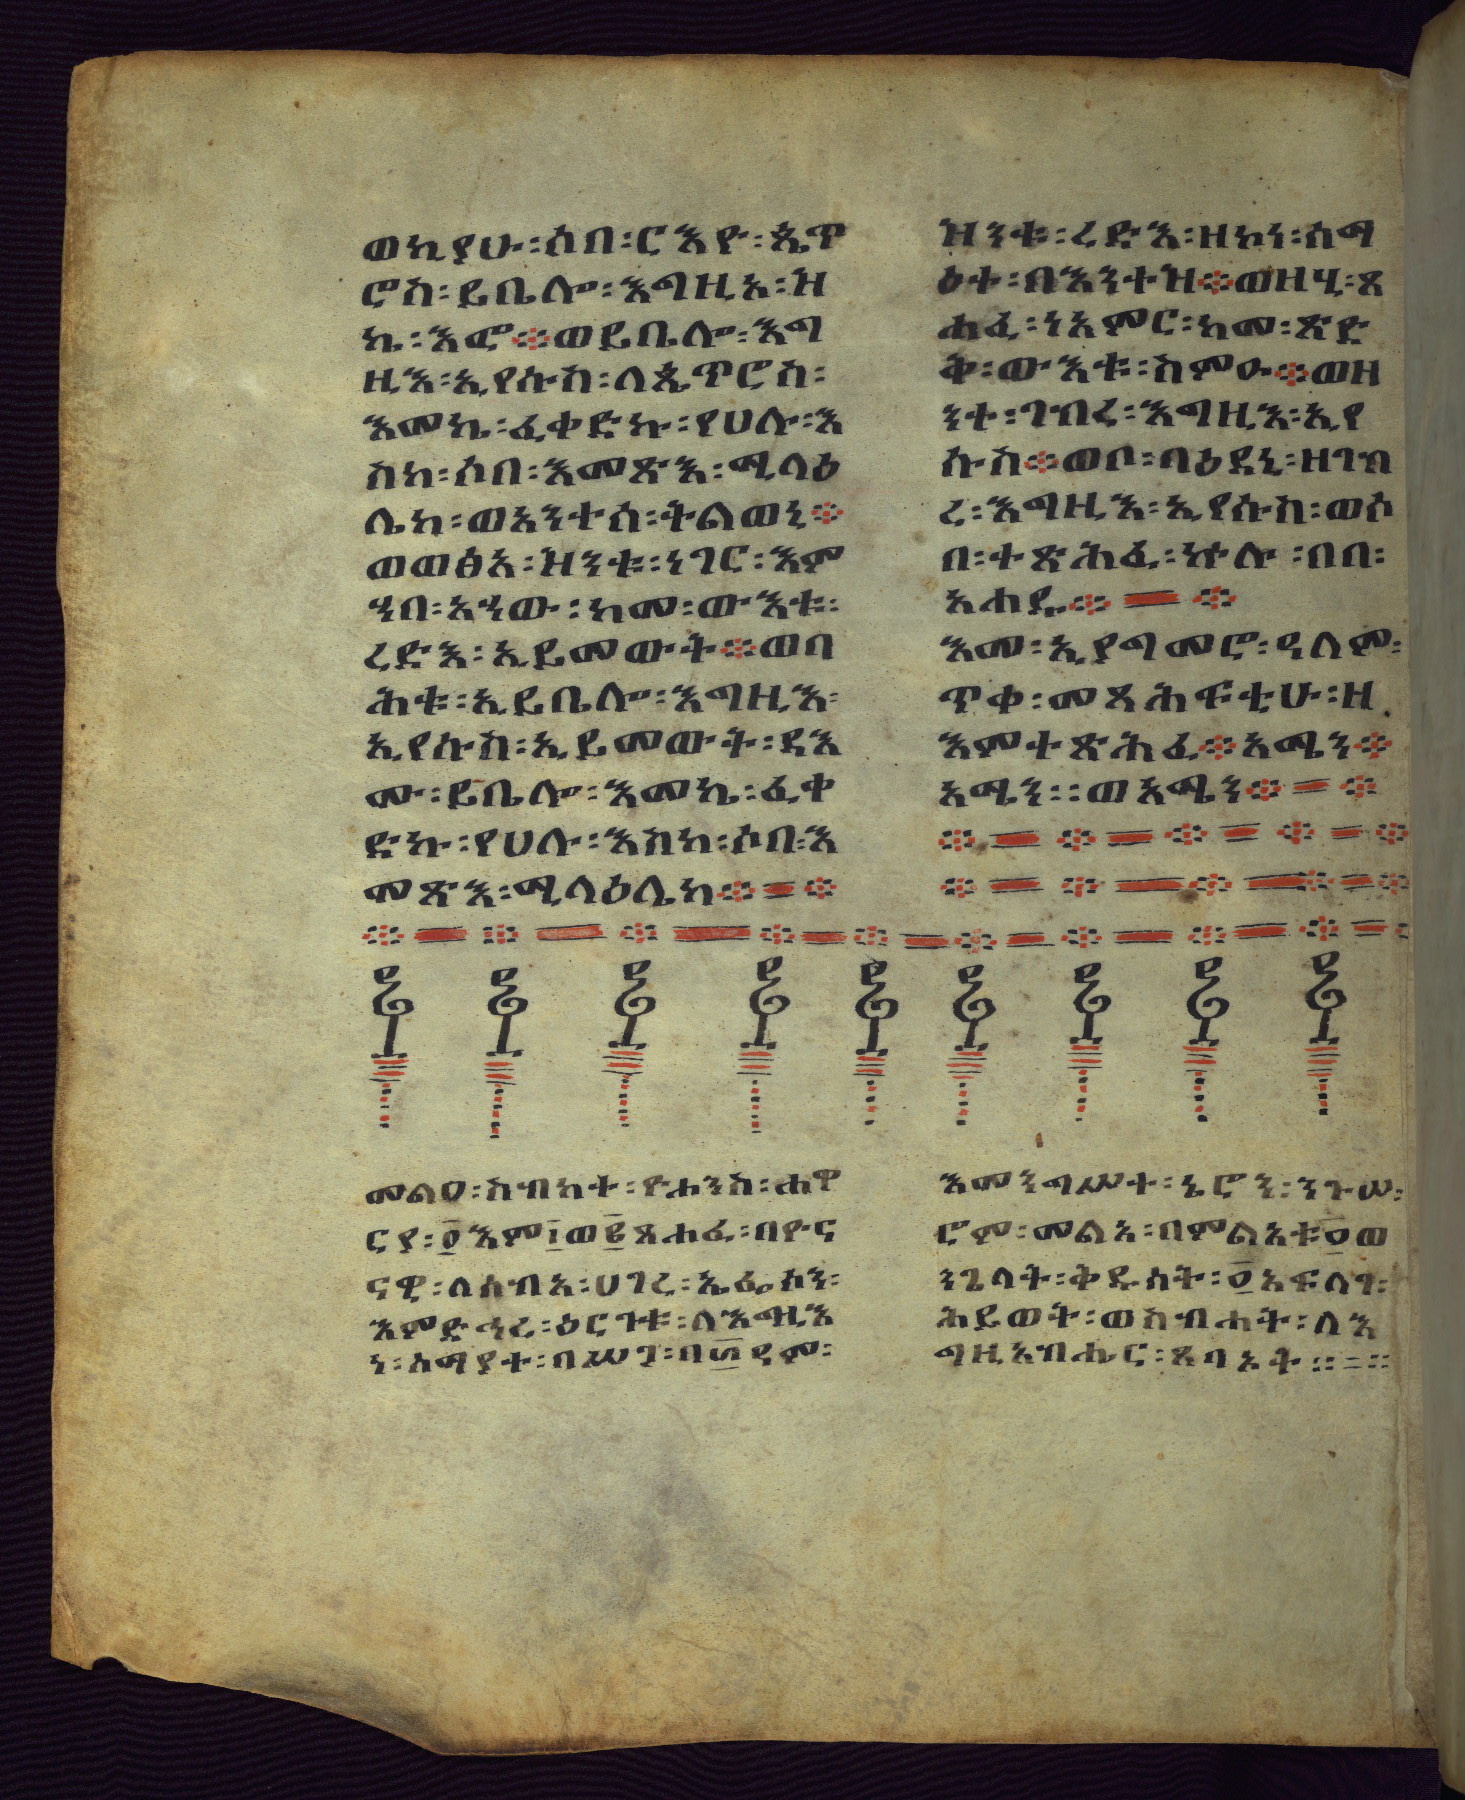 ወኪያሁ፡ሶበ፡ርእዮ፡ጴጥ
ሮስ፡ይቤሎ፡እግዚአ፡ዝ
ኬ፡እፎ፨ወይቤሎ፡እግ
ዚእ፡ኢየሱስ፡ለጴጥሮስ፡
እመኬ፡ፈቀድኩ፡የሀሉ፡እ
ስከ፡ሶበ፡እመጽእ፡ሚላዕ
ሌከ፡ወአንተሰ፡ትልወኒ፨
ወወፅአ፡ዝንቱ፡ነገር፡እም
ኀበ፡አኀው፡ከመ፡ውእቱ፡
ረድእ፡ኢይመውት፨ወባ
ሕቱ፡ኢይቤሎ፡እግዚእ፡
ኢየሱስ፡ኢይመውት፡ዳእ
ሙ፡ይቤሎ፡እመኬ፡ፈቀ
ድኩ፡የሀሉ፡እስከ፡ሶበ፡እ
መጽእ፡ሚላዕሌከ፨=፨
ዝንቱ፡ረድእ፡ዘኮነ፡ሰማ
ዕተ፡በእንተዝ፨ወዘሂ፡ጸ
ሐፈ፡ነአምር፡ከመ፡ጽድ
ቅ፡ውእቱ፡ስምዑ፨ወዘ
ንተ፡ገብረ፡እግዚእ፡ኢየ
ሱስ፨ወቦ፡ባዕደኒ፡ዘገብ
ረ፡እግዚእ፡ኢየሱስ፡ወሶ
በ፡ተጽሕፈ፡ኵሉ፡በበ፡
አሐዱ፨=፨
እመ፡ኢያግመሮ፡ዓለም፡
ጥቀ፡መጻሕፍቲሁ፡ዘ
እምተጽሕፈ፨አሜን፨
አሜን፡፡ወአሜን፨=፨
መልዐ፡ስብከተ፡ዮሐንስ፡ሐዋ
ርያ፡፩እም፲ወ፪ጸሐፈ፡በዮና
ናዊ፡ለሰብአ፡ሀገረ፡ኤፌሶን፡
እምድኅረ፡ዕርገቱ፡ለእግዚእ
ነ፡ሰማያተ፡በሥጋ፡በ፴ዓም፡
እመንግሥተ፡ኔሮን፡ንጉሠ፡
ሮም፡መልአ፡በምልአቱ፬ወ
ንጌላት፡ቅዱሳት፡፬አፍላገ፡
ሕይወት፡ወስብሐት፡ለእ
ግዚአብሔር፡ጸባኦት፡፡=፡፡